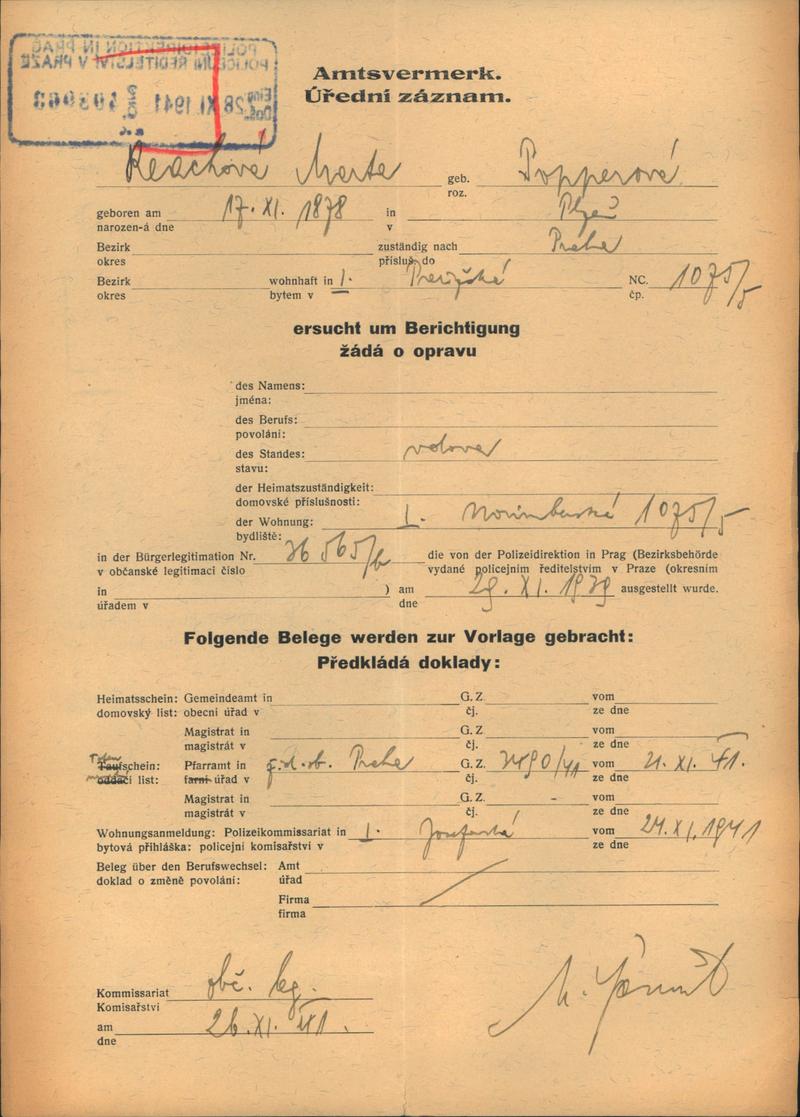 POLIZEIDIREKTION IN PRAG
POLICEJNÍ ŘEDITELSTVÍ V PRAZE
28 XI 1941
Amtsvermerk.
Úřední záznam.
Reachová Marta geb. Popperová
roz.
geboren am 17. XI. 1878 in Plzeň
narozen-á dne v
Bezirk zuständig nach Praha
okres přísluš. do
Bezirk wohnhaft in I. Pařížská NC. 1075/5
okres bytem v čp.
ersucht um Berichtigung
žádá o opravu
des Namens:
jména:
des Berufs:
povolání:
des Standes: vdova
stavu:
der Heimatszuständigkeit:
domovské příslušnosti:
der Wohnung: I. Norimberská 1075/5
bydliště:
in der Bürgerlegitimation Nr. 36565/6 die von der Polizeidirektion in Prag (Bezirksbehörde
v občanské legitimaci číslo vydané policejním ředitelstvím v Praze (okresním
in ) am 29. XI. 1939 ausgestellt wurde.
úřadem v dne
Folgende Belege werden zur Vorlage gebracht:
Předkládá doklady:
Heimatsschein: Gemeindeamt in G. Z. vom
domovský list: obecní úřad v čj. ze dne
Magistrat in G. Z. vom
magistrát v čj. ze dne
Taufschein: Pfarramt in ž. d. ob. Praha G. Z. 2490/41 vom 21. XI. 41.
oddací list: farní úřad v čj. ze dne
Magistrat in G. Z. - vom
magistrát v čj. ze dne
Wohnungsanmeldung: Polizeikommissariat in I. Josefská vom 24. XI. 1941
bytová přihláška: policejní komisařství v ze dne
Beleg über den Berufswechsel: Amt
doklad o změně povolání: úřad
Firma
firma
Kommissariat obč. leg.
Komisařství
am 26. XI. 41.
dne